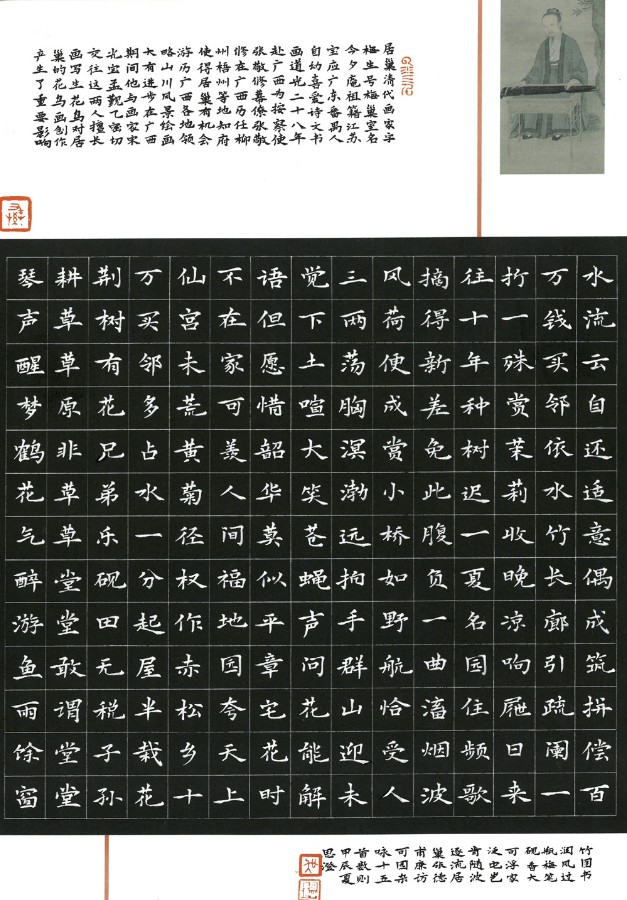 居巢清代画家字
梅生号梅巢室名
今夕庵祖籍江苏
宝应广东番禺人
自幼喜爱诗文书
画道光二十八年
赴广西为按察使
张敬修幕僚张敬
修在广西历任柳
州梧州等地知府
使得居巢有机会
游历广西各地领
略山川风景绘画
大有进步在广西
期间他与画家宋
光宝孟觐乙密切
交往这两人擅长
画写生花鸟对居
巢的花鸟画创作
产生了重要影响
水流云自还适意偶成筑拼偿百
万钱买邻依水竹长廊引疏阑一
折一殊赏茉莉收晚凉响屧日来
往十年种树迟一夏名园住频歌
摘得新差免此腹负一曲滀烟波
风荷便成赏小桥如野航恰受人
三两荡胸溟渤远拍手群山迎未
觉下土喧大笑苍蝇声问花能解
语但愿惜韶华莫似平章宅花时
不在家可羡人间福地园夸天上
仙宫未荒黄菊径权作赤松乡十
万买邻多占水一分起屋半栽花
荆树有花兄弟乐砚田无税子孙
耕草草原非草草堂堂敢谓堂堂
琴声醒梦鹤花气醉游鱼雨馀窗
竹图书
润风过
瓶梅笔
砚香大
可浮家
泛宅岂
肯随波
逐流居
巢张德
甫廉访
可园杂
咏十五
首数则
甲辰夏
思澄